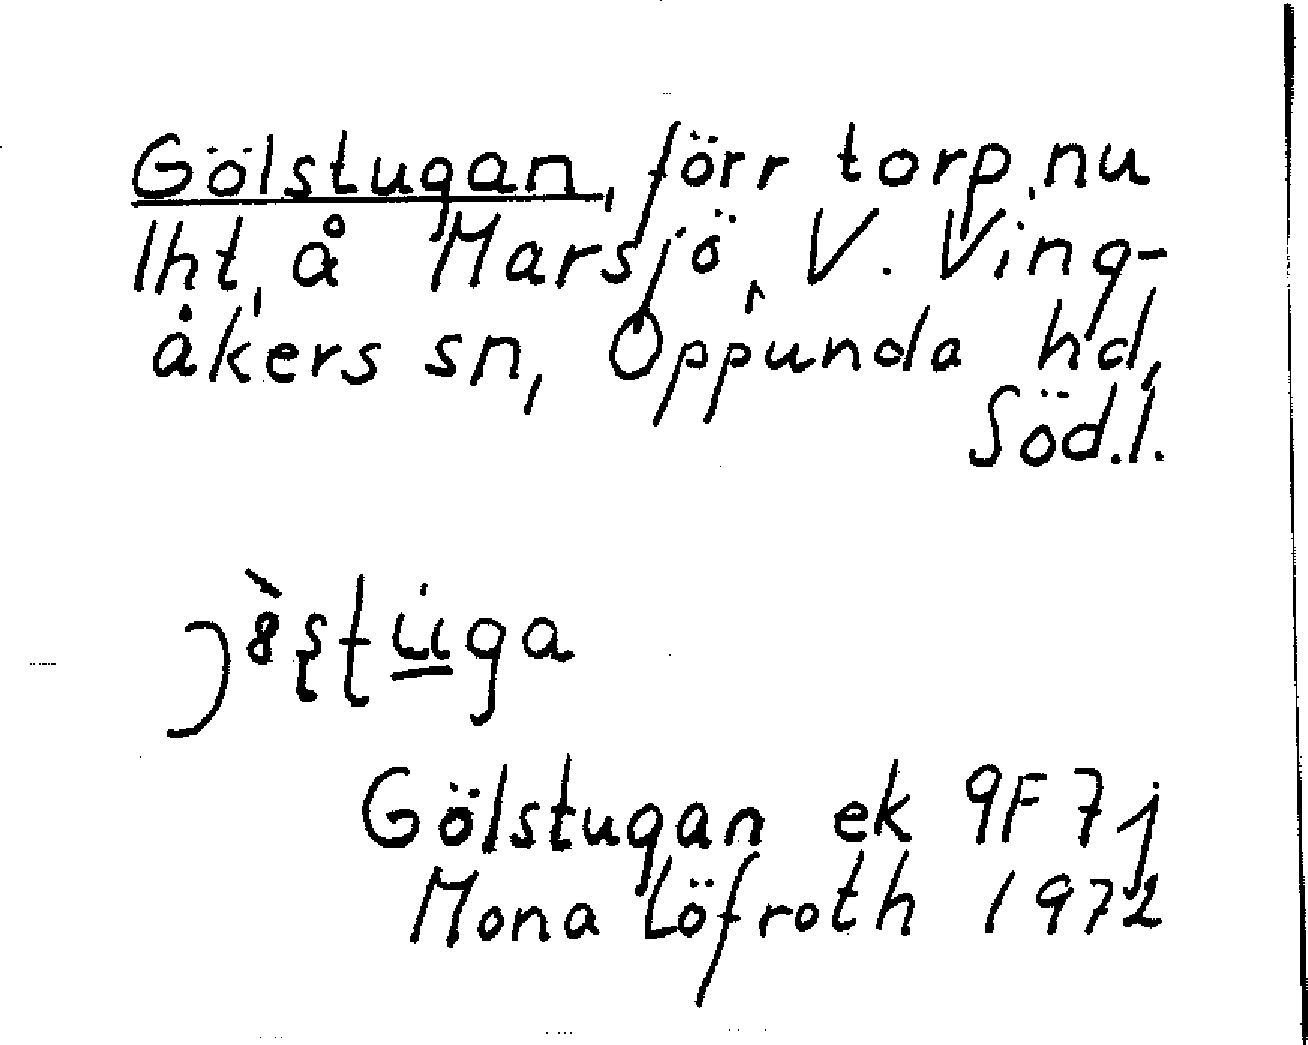 Gölstugan, förr torp, nu
lht, å Marsjö, V. Ving-
åkers sn, Oppunda hd,
Söd.l.
Gölstugan ek 9F 7j
Mona Löfroth 1972